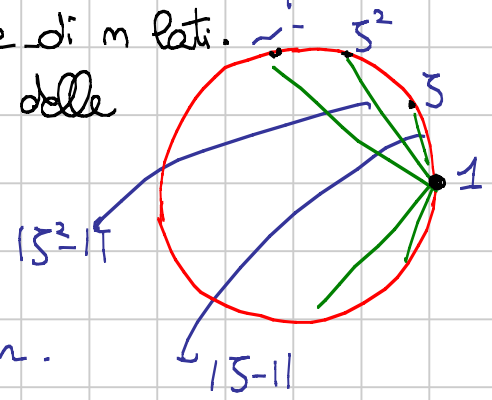 di n lati.
delle
ζ²
ζ
1
|ζ²-1|
n.
|ζ-1|